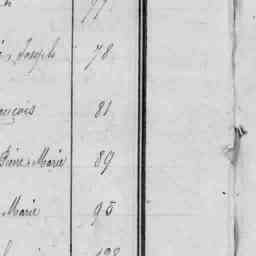 77
Joseph 78
ançois 81
Pierre Marie 89
Marie 95
128